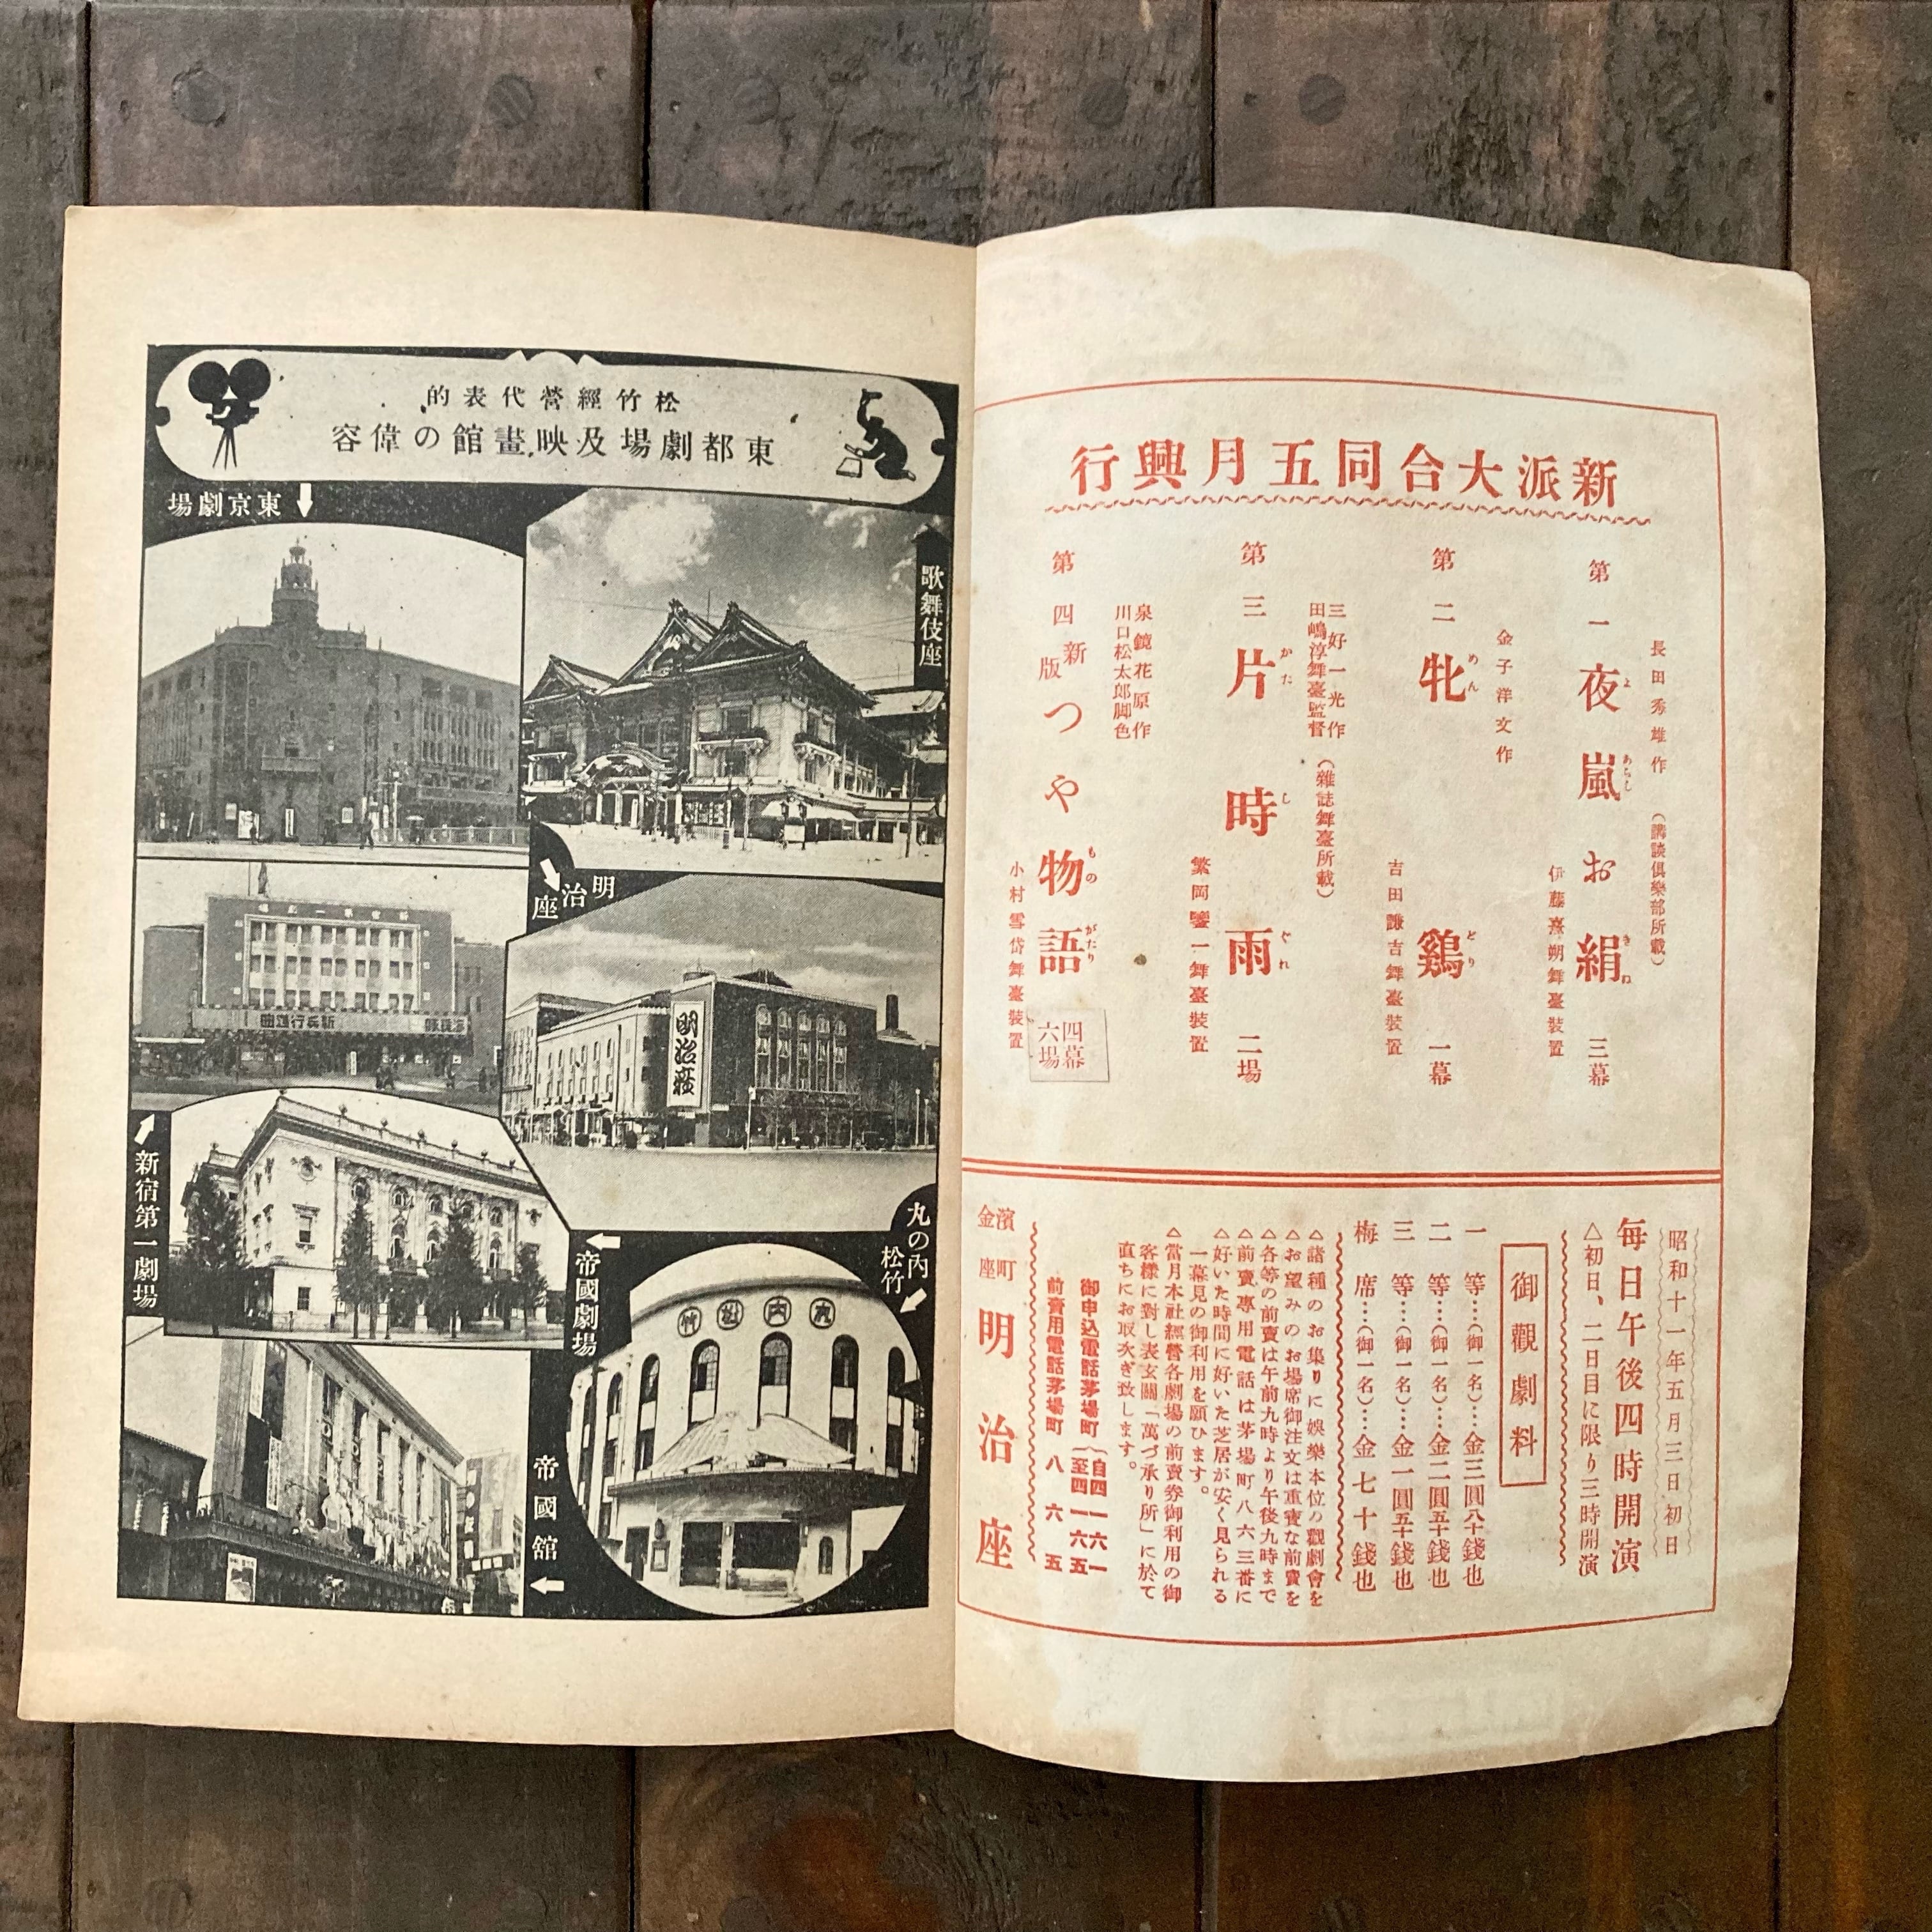 新派大合同五月興行
長田秀雄作 (講談倶樂部所載)
第一 夜嵐お絹 三幕
よ あらし きぬ
伊藤熹朔舞臺裝置
金子洋文作
第二 牝鷄 一幕
めん どり
吉田謙吉舞臺裝置
三好一光作 (雜誌舞臺所載)
田嶋淳舞臺監督
第三 片時雨 二場
かた し ぐれ
繁岡鑒一舞臺裝置
泉鏡花原作
川口松太郎脚色
第四 新版 つや物語
もの がたり
四幕
六場
小村雪岱舞臺裝置
昭和十一年五月三日初日
每日午後四時開演
△初日、二日目に限り三時開演
御觀劇料
一等…(御一名)…金三圓八十錢也
二等…(御一名)…金二圓五十錢也
三等…(御一名)…金一圓五十錢也
梅席…(御一名)…金七十錢也
△諸種のお集りに娯樂本位の觀劇會を
△お望みのお場席御注文は重寶な前賣を
△各等の前賣は午前九時より午後九時まで
△前賣專用電話は茅場町八六三番に
△好いた時間に好いた芝居が安く見られる
一幕見の御利用を願ひます。
△當月本社經營各劇場の前賣券御利用の御
客樣に對し表玄關「萬づ承り所」に於て
直ちにお取次ぎ致します。
御申込電話茅場町(自四一六一
至四一六五
前賣用電話茅場町 八六五
濱町
金座
明治座
松竹經營代表的
東都劇場及映畫館の偉容
歌舞伎座
東京劇場
明治座
明治座
新宿第一劇場
新宿第一劇場
丸の內松竹
丸內松竹
帝國劇場
帝國館